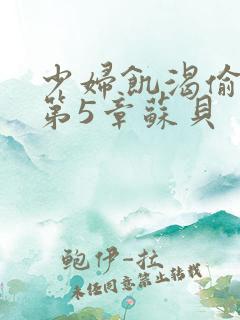 少婦飢渴偷
第5章蘇貝
鲍伊-拉
未经同意禁止转载